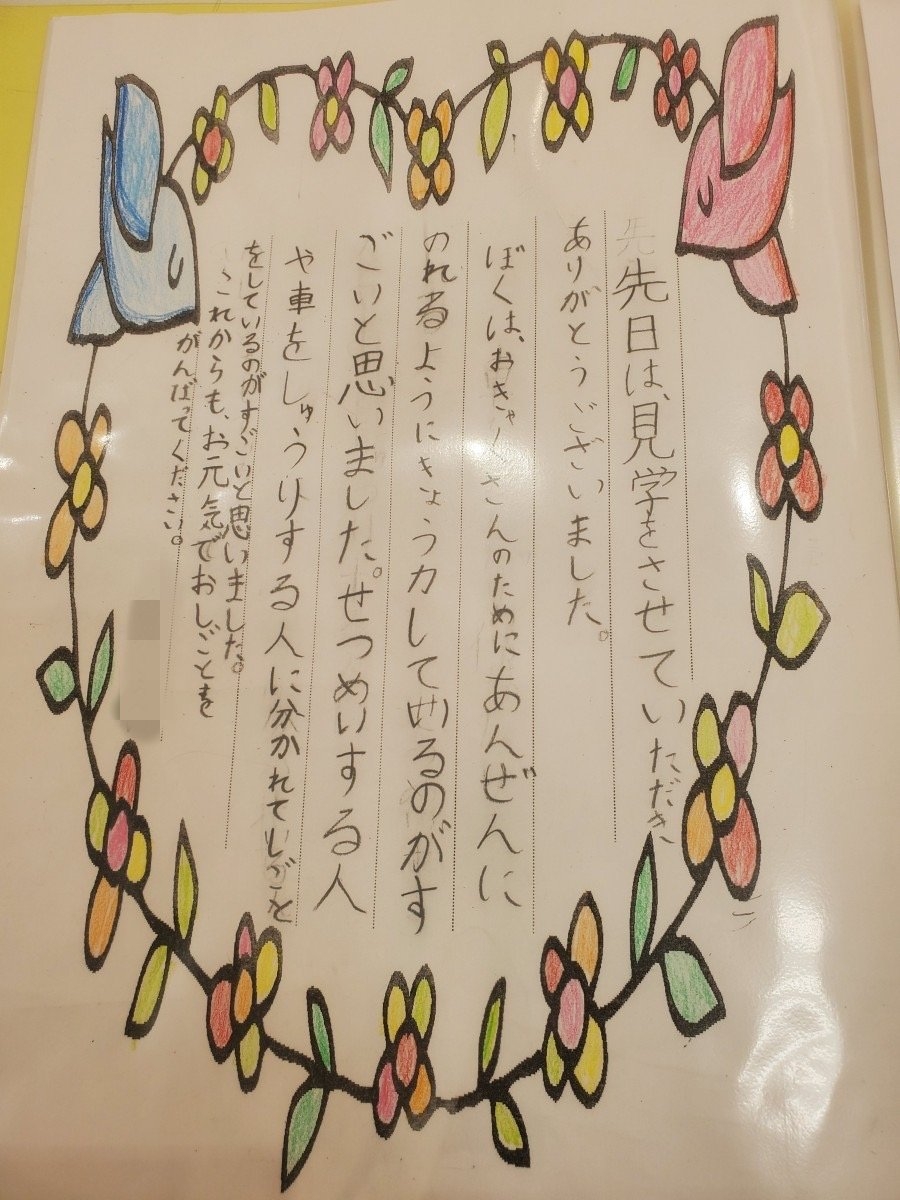 先日は、見学をさせていただき、
ありがとうございました。
ぼくは、おきゃくさんのためにあんぜんに
のれるようにきょうカしているのがす
ごいと思いました。せつめいする人
や車をしゅうりする人に分かれてしごと
をしているのがすごいと思いました。
これからも、お元気でおしごとを
がんばってください。